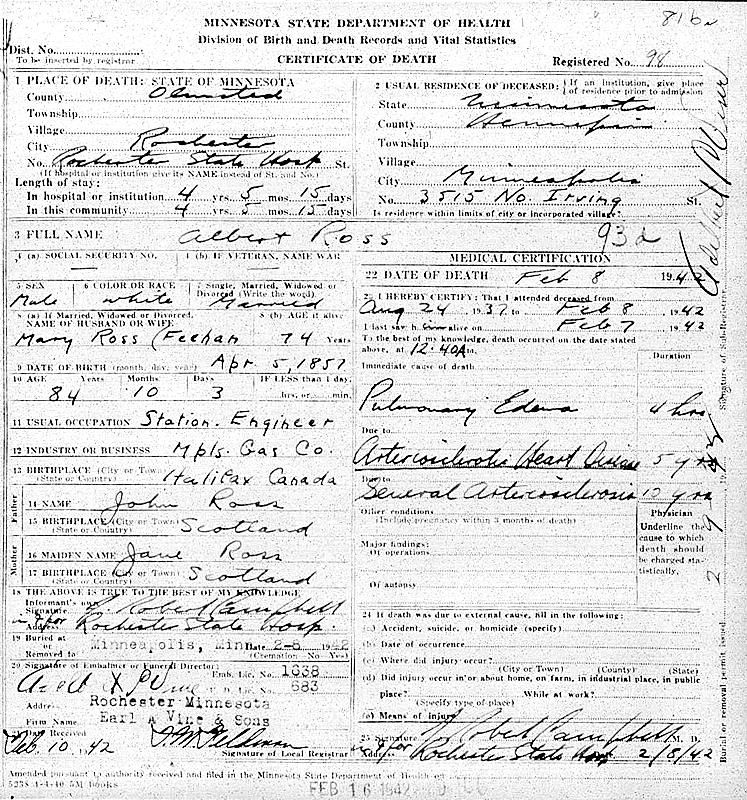 MINNESOTA STATE DEPARTMENT OF HEALTH
Division of Birth and Death Records and Vital Statistics
CERTIFICATE OF DEATH
816a
Dist. No.
To be inserted by registrar
Registered No. 98
1 PLACE OF DEATH: STATE OF MINNESOTA
County Olmsted
Township
Village
City Rochester
No. Rochester State Hosp St.
(If hospital or institution give its NAME instead of St. and No.)
Length of stay:
In hospital or institution 4 yrs. 5 mos. 15 days
In this community 4 yrs. 5 mos. 15 days
2 USUAL RESIDENCE OF DECEASED: (If an institution, give place of residence prior to admission
State Minnesota
County Hennepin
Township
Village
City Minneapolis
No. 3515 No. Irving St.
Is residence within limits of city or incorporated village?
3 FULL NAME Albert Ross
93d
4 (a) SOCIAL SECURITY NO.
4 (b) IF VETERAN, NAME WAR
5 SEX
Male
6 COLOR OR RACE
White
7 Single, Married, Widowed or Divorced (Write the word)
Married
8 (a) If Married, Widowed or Divorced,
NAME OF HUSBAND OR WIFE
8 (b) AGE if alive,
Mary Ross (Feehan 74 Years
9 DATE OF BIRTH (month, day, year) Apr. 5, 1857
10 AGE Years Months Days IF LESS than 1 day,
84 10 3 hrs. or min.
11 USUAL OCCUPATION Station. Engineer
12 INDUSTRY OR BUSINESS Mpls. Gas Co.
13 BIRTHPLACE (City or Town)
(State or Country) Halifax Canada
Father
14 NAME John Ross
15 BIRTHPLACE (City or Town)
(State or Country) Scotland
Mother
16 MAIDEN NAME Jane Ross
17 BIRTHPLACE (City or Town)
(State or Country) Scotland
18 THE ABOVE IS TRUE TO THE BEST OF MY KNOWLEDGE
Informant's own
Signature Robert Campbell
Address Rochester State Hosp.
19 Buried at
or
Removed to Minneapolis, Minn Date 2-8 1942
(Cremation No Yes)
20 Signature of Embalmer or Funeral Director:
Emb. Lic. No. 1638
F. D. Lic. No. 683
Address Rochester Minnesota
Firm Name Earl A Vine & Sons
Date Received
Feb. 10, 42
Signature of Local Registrar
MEDICAL CERTIFICATION
22 DATE OF DEATH Feb 8 1942
23 I HEREBY CERTIFY: That I attended deceased from
Aug 24 1937 to Feb 8 1942
I last saw him alive on Feb 7 1942
To the best of my knowledge, death occurred on the date stated above, at 12:40A m.
Immediate cause of death
Duration
Pulmonary Edema 4 hrs.
Due to
Arteriosclerotic Heart Disease 5 yrs
Due to
General Arteriosclerosis 10 yrs
Other conditions
(Include pregnancy within 3 months of death)
Major findings:
Of operations
Of autopsy
Physician
Underline the cause to which death should be charged statistically.
24 If death was due to external cause, fill in the following:
(a) Accident, suicide, or homicide (specify)
(b) Date of occurrence
(c) Where did injury occur?
(City or Town) (County) (State)
(d) Did injury occur in or about home, on farm, in industrial place, in public place? While at work?
(Specify type of place)
(e) Means of injury
25 Signature Robert Campbell M. D.
Address Rochester State Hosp 2/8/42
Signature of Sub-Registrar
Burial or removal permit issued
Amended pursuant to authority received and filed in the Minnesota State Department of Health on
5258 4-4-40 5M Books
FEB 16 1942